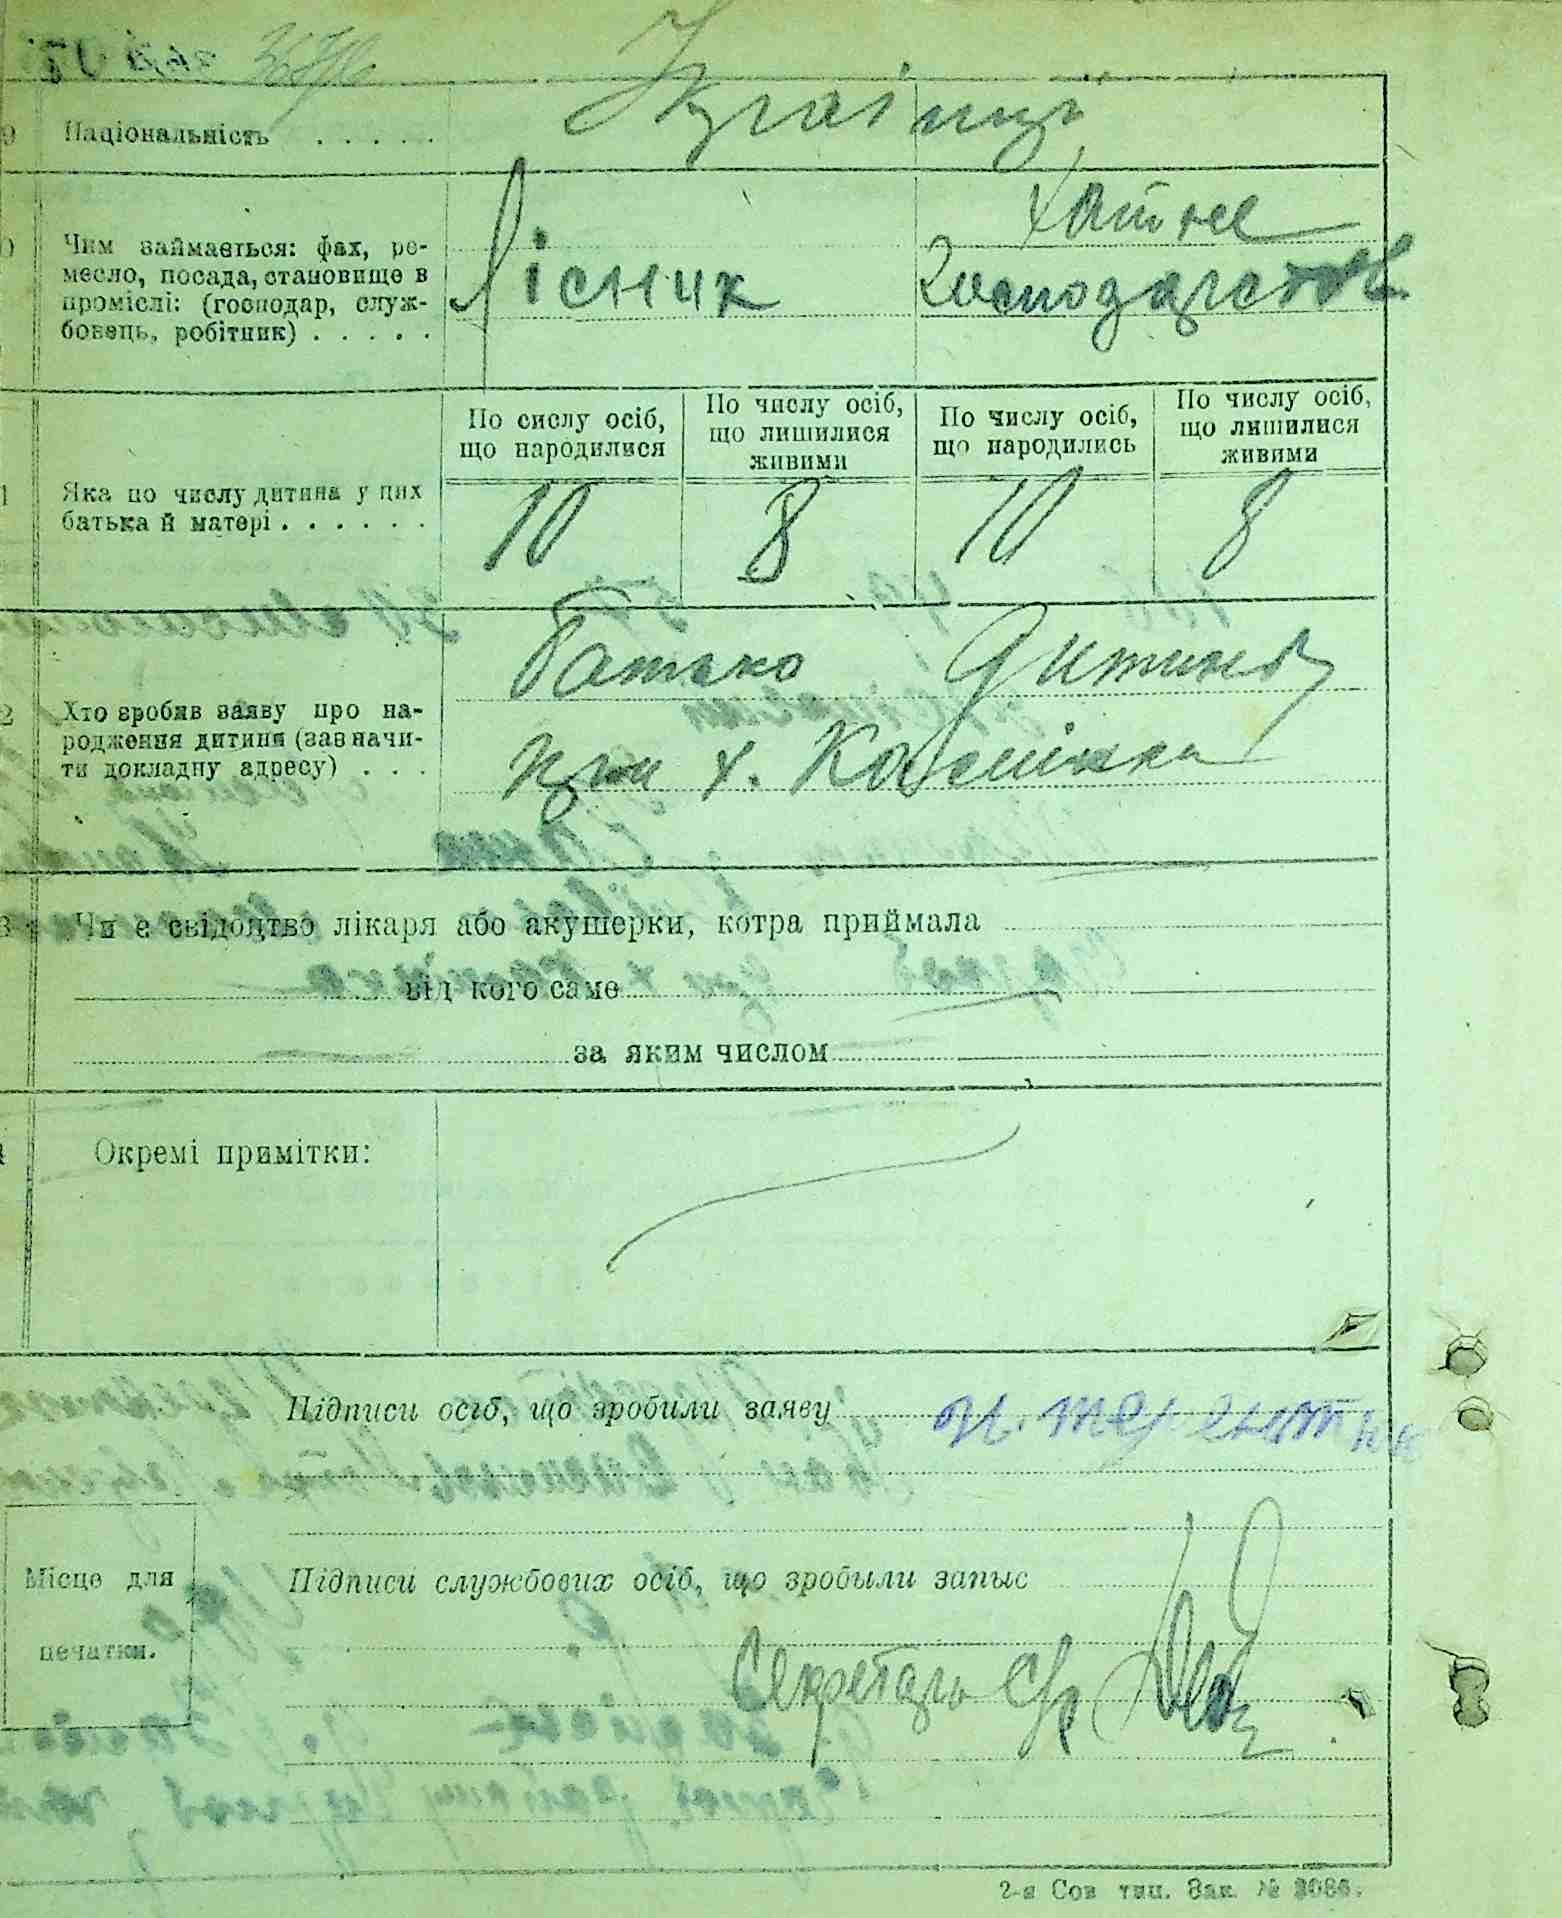 9 Національність . . . . . Українці
Чим займається: фах, ре-
месло, посада, становище в
проміслі: (господар, служ-
бовець, робітник) . . . . .
Лісник
Хатнє
господарство
По сислу осіб,
що народилися
По числу осіб,
що лишилися
живими
По числу осіб,
що народились
По числу осіб,
що лишилися
живими
1 Яка по числу дитина у цих
батька й матері . . . . . .
10 8 10 8
2 Хто зробив заяву про на-
родження дитини (зазначи-
ти докладну адресу) . . .
Батько Дитини
при х.
3 Чи є свідоцтво лікаря або акушерки, котра приймала
від кого саме
за яким числом
Окремі примітки:
Підписи осіб, що зробили заяву
Місце для
печатки.
Підписи службових осіб, що зробыли запыс
Секретарь С/р
2-я Сов тип. Зак. № 3086.